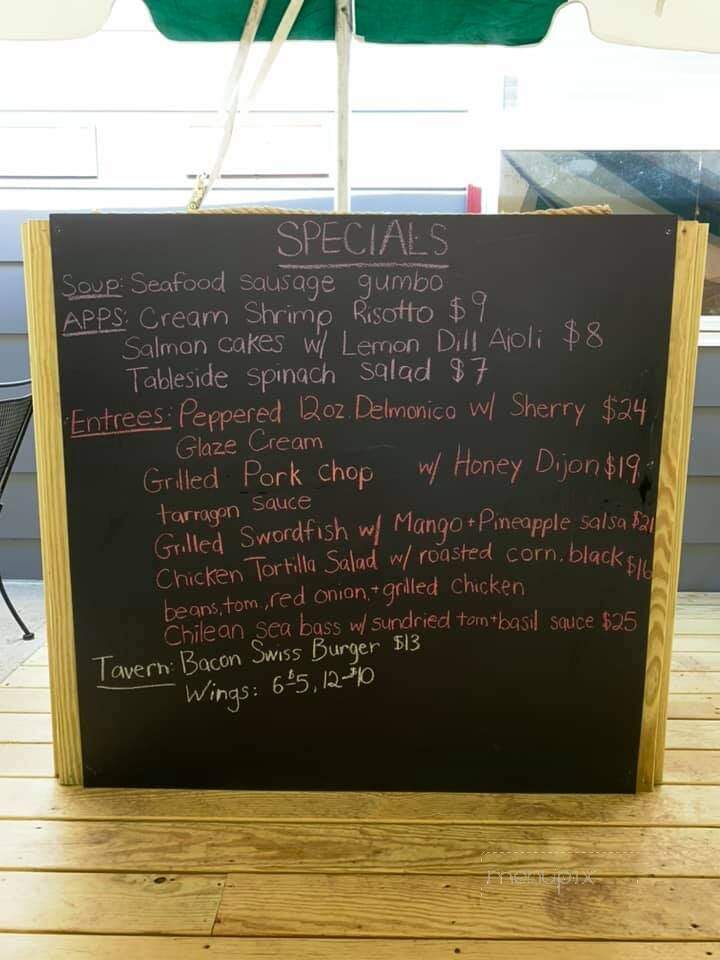 SPECIALS
Soup: Seafood sausage gumbo
APPS: Cream Shrimp Risotto $9
Salmon cakes w/ Lemon Dill Ajoli $8
Tableside spinach salad $7
Entrees: Peppered 12oz. Delmonico w/ Sherry $24
Glaze Cream
Grilled Pork chop w/ Honey Dijon $19
tarragon sauce
Grilled Swordfish w/ Mango + Pineapple salsa $21
Chicken Tortilla Salad w/ roasted corn, black $16
beans, tom, red onion, + grilled chicken
Chilean sea bass w/ sundried tom + basil sauce $25
Tavern: Bacon Swiss Burger $13
Wings: 6-$5, 12-$10
menupix